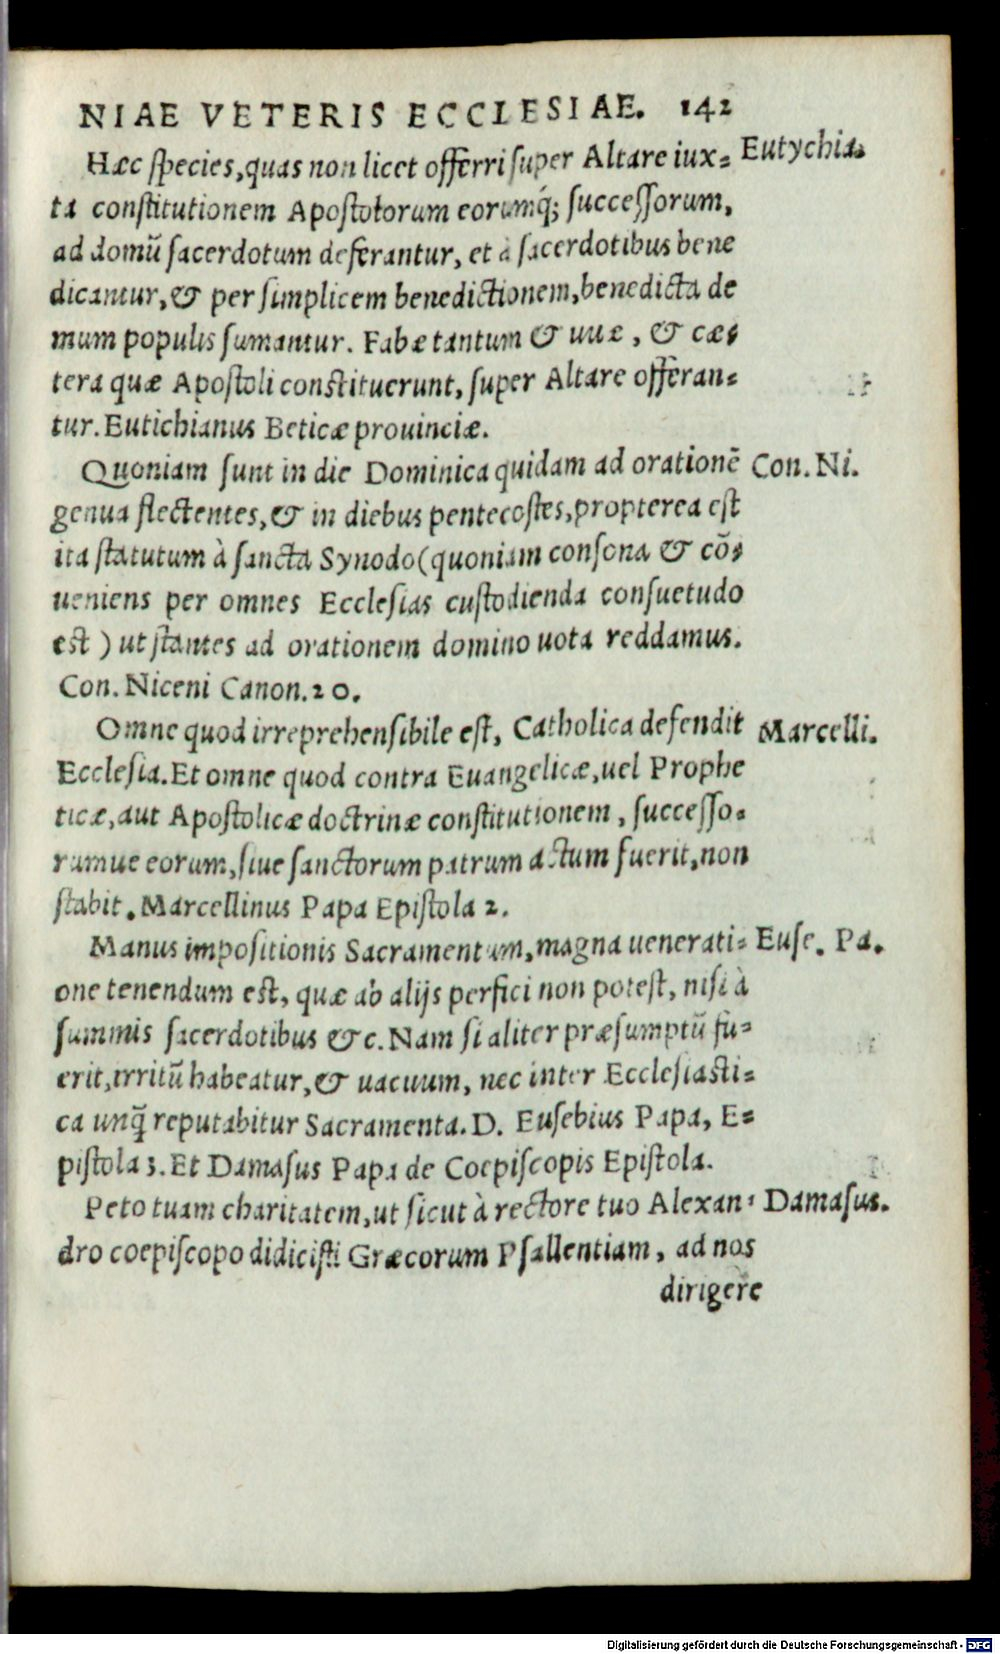 NIAE VETERIS ECCLESIAE. 142
Hæc species, quas non licet offerri super Altare iux= Eutychia.
ta constitutionem Apostolorum eorumq́; successorum,
ad domũ sacerdotum deferantur, et à sacerdotibus bene
dicantur, & per simplicem benedictionem, benedicta de
mum populis sumantur. Fabæ tantum & uuæ, & cæ=
tera quæ Apostoli constituerunt, super Altare offeran=
tur. Eutichianus Beticæ prouinciæ.
Quoniam sunt in die Dominica quidam ad orationẽ Con. Ni.
genua flectentes, & in diebus pentecostes, propterea est
ita statutum à sancta Synodo (quoniam consona & cõ=
ueniens per omnes Ecclesias custodienda consuetudo
est) ut stantes ad orationem domino uota reddamus.
Con. Niceni Canon. 20.
Omne quod irreprehensibile est, Catholica defendit Marcelli.
Ecclesia. Et omne quod contra Euangelicæ, uel Prophe
ticæ, aut Apostolicæ doctrinæ constitutionem, successo=
rumue eorum, siue sanctorum patrum actum fuerit, non
stabit. Marcellinus Papa Epistola 2.
Manus impositionis Sacramentum, magna uenerati= Euse. Pa.
one tenendum est, quæ ab alijs perfici non potest, nisi à
summis sacerdotibus &c. Nam si aliter præsumptũ fu=
erit, irritũ habeatur, & uacuum, nec inter Ecclesiasti=
ca unq̃ reputabitur Sacramenta. D. Eusebius Papa, E=
pistola 3. Et Damasus Papa de Coepiscopis Epistola.
Peto tuam charitatem, ut sicut à rectore tuo Alexan= Damasus.
dro coepiscopo didicisti Græcorum Psallentiam, ad nos
dirigere
Digitalisierung gefördert durch die Deutsche Forschungsgemeinschaft - DFG